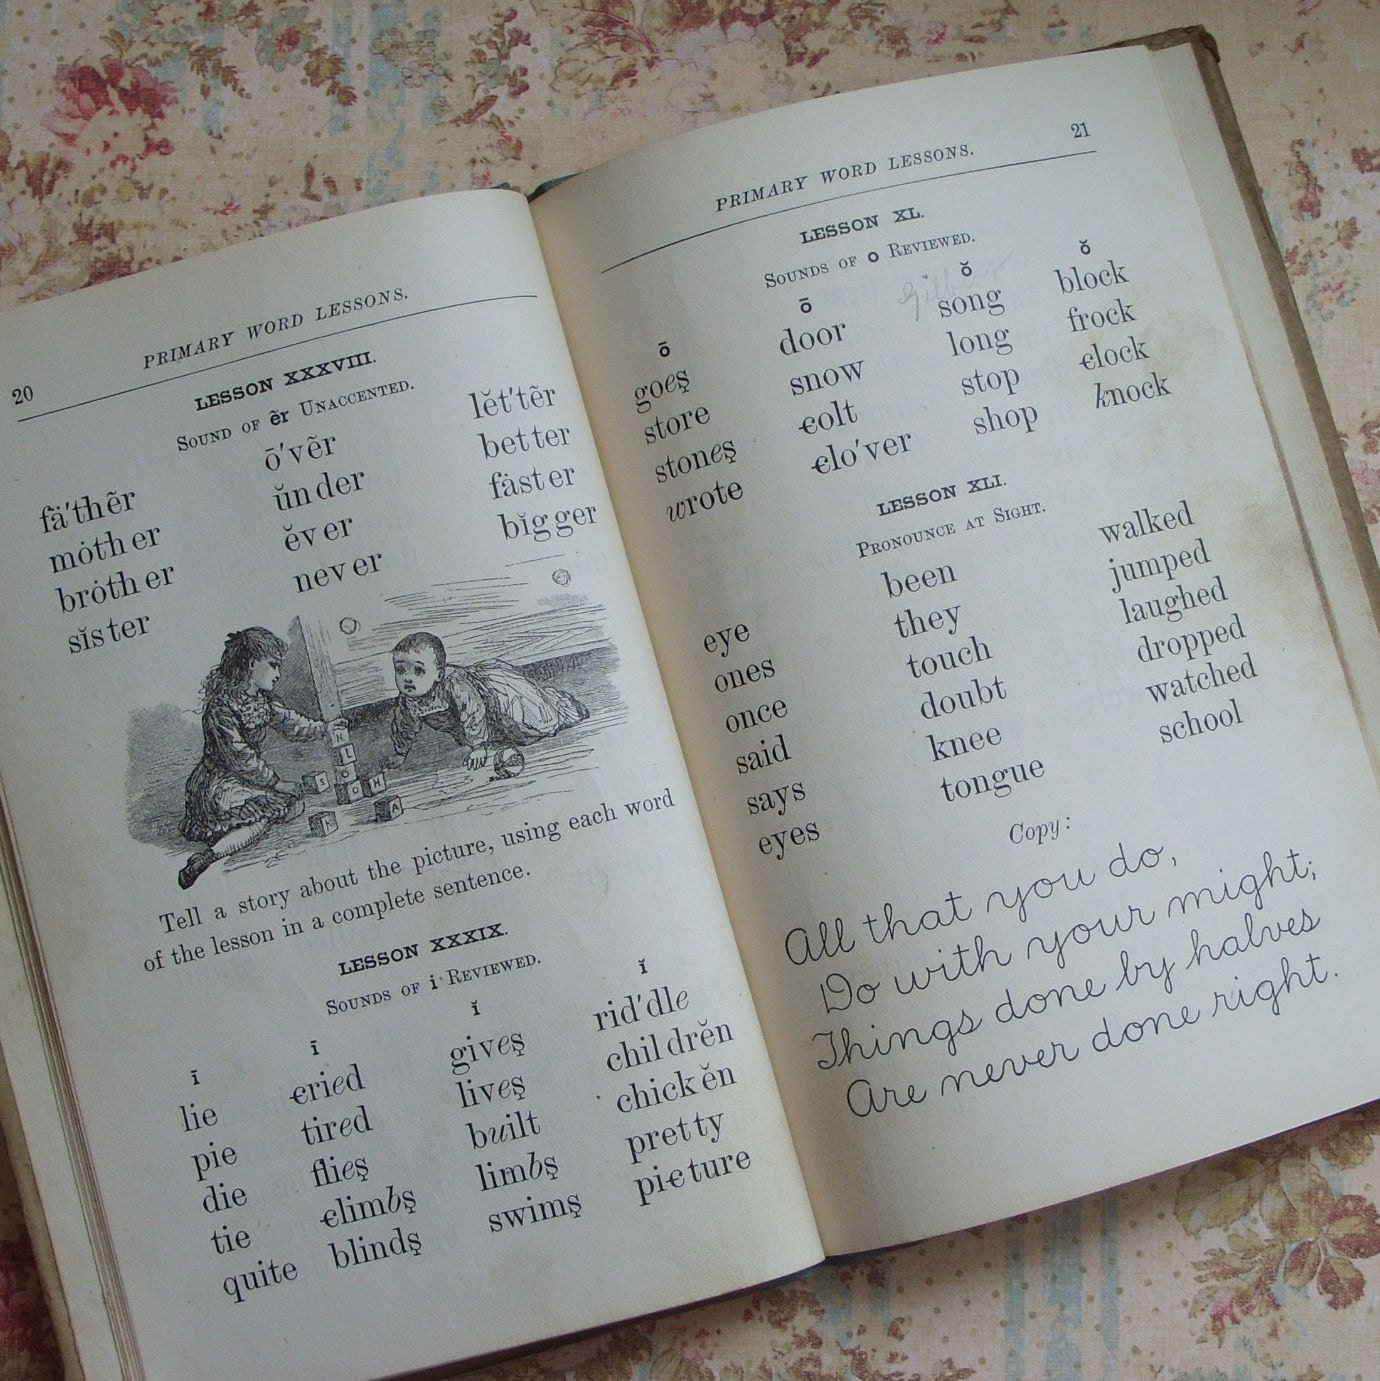 20
PRIMARY WORD LESSONS.
LESSON XXXVIII.
SOUND OF ẽr UNACCENTED.
fä'thẽr ō'vẽr lĕt'tẽr
mȯth er ŭn der bet ter
brȯth er ĕv er fȧst er
sĭs ter nev er bĭg ger
Tell a story about the picture, using each word
of the lesson in a complete sentence.
LESSON XXXIX.
SOUNDS OF i REVIEWED.
ī ī ĭ ĭ
lie ꞓried giveş rid'dle
pie tired liveş chil drĕn
die flieş built chick ĕn
tie ꞓlimbş limbş pret ty
quite blindş swimş piꞓ ture
21
PRIMARY WORD LESSONS.
LESSON XL.
SOUNDS OF o REVIEWED.
ō ō ŏ ŏ
goeş door song block
store snow long frock
stoneş ꞓolt stop ꞓlock
wrote ꞓlo'ver shop knock
LESSON XLI.
PRONOUNCE AT SIGHT.
eye been walked
ones they jumped
once touch laughed
said doubt dropped
says knee watched
eyes tongue school
Copy:
All that you do,
Do with your might;
Things done by halves
Are never done right.